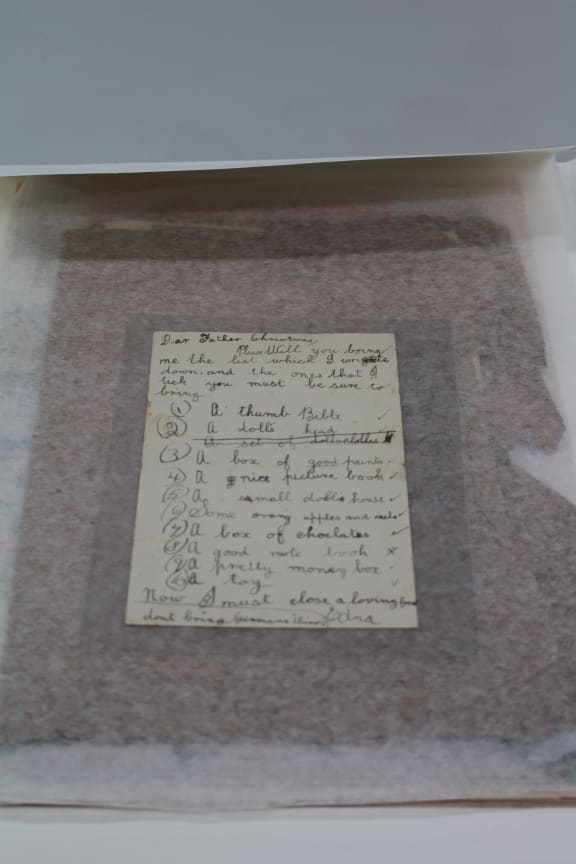 Dear Father Christmas,
Please Will you bring
me the list which I write
down, and the ones that I
tick you must be sure to
bring
(1) A thumb Bible ✓
(2) A dolls head ✓
A set of dollsclothes
(3) A box of good paints ✓
(4) A nice picture book ✓
(5) A small dolls house ✓
(6) Some orang. apples and nuts ✓
(7) A box of choclates ✓
(8) A good note book x
(9) A pretty money box ✓
(10) A toy ✓
Now I must close a loving
dont bring